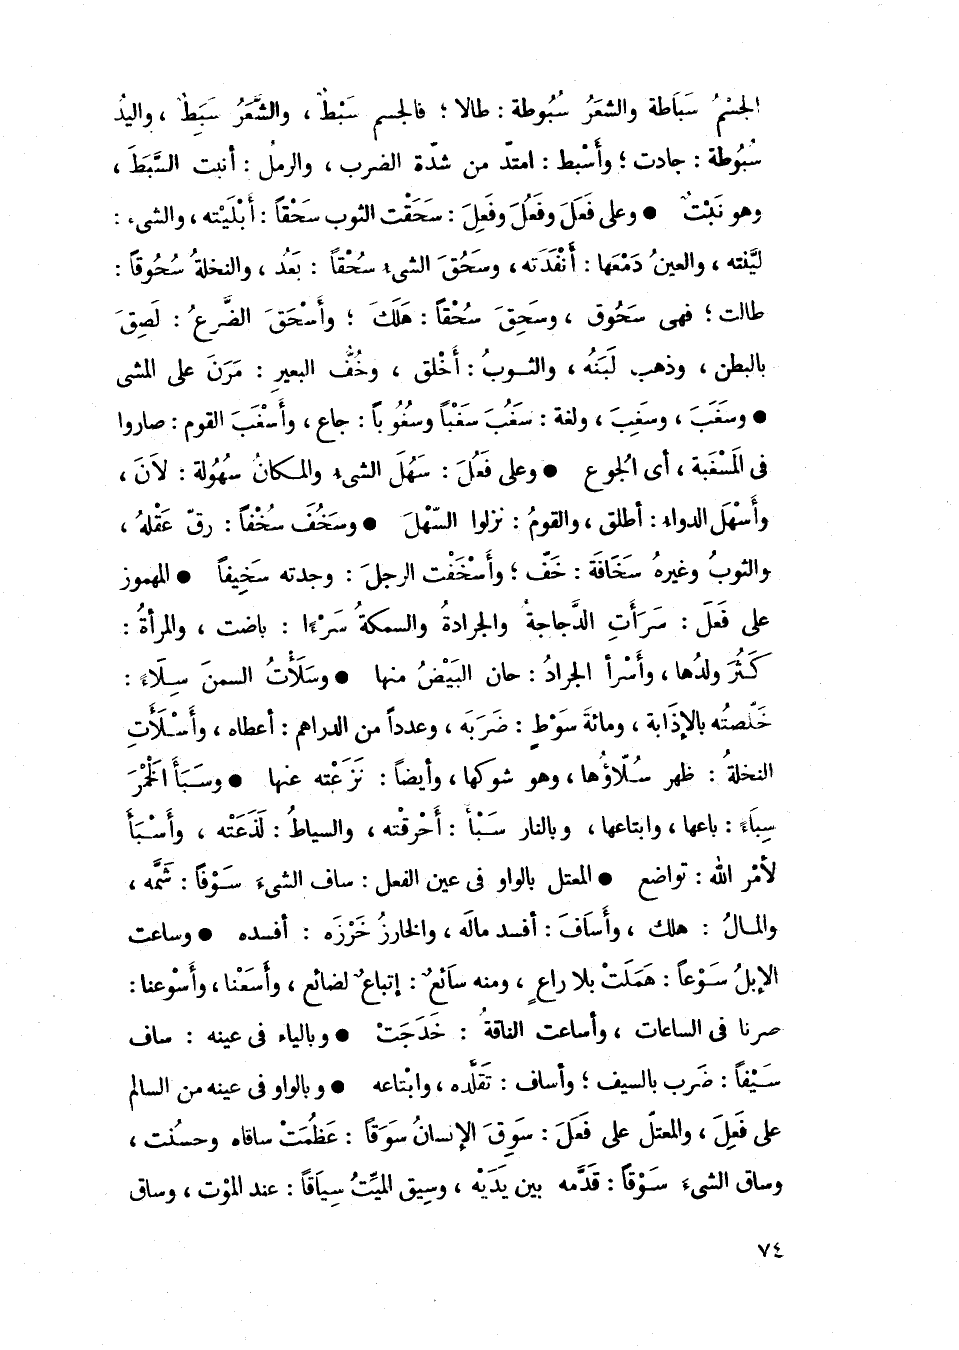 الجسْمُ سَبَاطة والشعَرُ سُبُوطة : طالا ؛ فالجسم سَبْطٌ ، والشَّعَرُ سَبَطٌ ، واليدُ
سُبُوطة : جادت ؛ وأَسْبط : امتدّ من شدّة الضرب ، والرملُ : أنبت السَّبَطَ ،
وهو نَبْتٌ ● وعلى فَعَلَ وفَعُلَ وفَعِلَ : سَحَقْت الثوب سَحْقاً : أَبْلَيْته ، والشىء :
ليَّنته ، والعينُ دَمْعَها : أَنْفَدَته ، وسَحُقَ الشىء سُحْقاً : بَعُد ، والنخلةُ سُحُوقاً :
طالت ؛ فهى سَحُوق ، وسَحِقَ سُحْقاً : هَلَكَ ؛ وأَسْحَقَ الضَّرعُ : لَصِقَ
بالبطن ، وذهب لَبَنُه ، والثوبُ : أَخْلق ، وخُفُّ البعيرِ : مَرَنَ على المشى
● وسَغَبَ ، وسغِبَ ، ولغة : سغُبَ سَغْباً وسُغُوباً : جاع ، وأَسْغَبَ القوم : صاروا
فى المَسْغَبة ، أى الجوع ● وعلى فَعُلَ : سَهُلَ الشىء والمكانُ سُهُولة : لاَنَ ،
وأَسْهَلَ الدواء : أطلق ، والقومُ : نزلوا السّهْلَ ● وسَخُفَ سُخْفاً : رقّ عَقْلهُ ،
والثوبُ وغيرهُ سَخَافَة : خَفّ ؛ وأَسْخَفْت الرجلَ : وجدته سَخِيفاً ● المهموز
على فَعَلَ : سَرَأَتِ الدَّجاجةُ والجرادةُ والسمكةُ سَرْءًا : باضت ، والمرأةُ :
كَثُرَ ولدُها ، وأَسْرأ الجرادُ : حان البَيْضُ منها ● وسَلَأْتُ السمنَ سِلَاءً :
خَلّصتُه بالإذَابة ، ومائةَ سَوْطٍ : ضَرَبَه ، وعدداً من الدراهم : أعطاه ، وأَسْلَأَتِ
النخلةُ : ظهر سُلّاؤُها ، وهو شوكها ، وأيضاً : نَزَعْته عنها ● وسَبَأَ الخَمْرَ
سِبَاءً : باعها ، وابتاعها ، وبالنار سَبْأً : أَحْرقْته ، والسياطُ : لَذَعَتْه ، وأَسْبَأَ
لأمْر الله : تواضع ● المعتل بالواو فى عين الفعل : ساف الشىءَ سَوْفاً : شَمَّه ،
والمالُ : هلك ، وأَسَافَ : أفسد مالَه ، والخارزُ خَرْزَه : أفسده ● وساعت
الإبلُ سَوْعاً : هَمَلَتْ بلا راعٍ ، ومنه سَائعٌ : إتباعٌ لضائع ، وأَسَعْنا ، وأَسْوعنا :
صرنا فى الساعات ، وأساعت الناقةُ : خَدَجَتْ ● وبالياء فى عينه : ساف
سَيْفاً : ضَرب بالسيف ؛ وأساف : تَقَلَّده ، وابْتاعه ● وبالواو فى عينه من السالم
على فَعِلَ ، والمعتلّ على فَعَلَ : سَوِقَ الإنسانُ سَوَقاً : عَظُمَتْ ساقاه وحسُنت ،
وساق الشىءَ سَوْقاً : قَدَّمه بين يَدَيْه ، وسِيق الميِّتُ سِيَاقاً : عند المَوْت ، وساق
٧٤